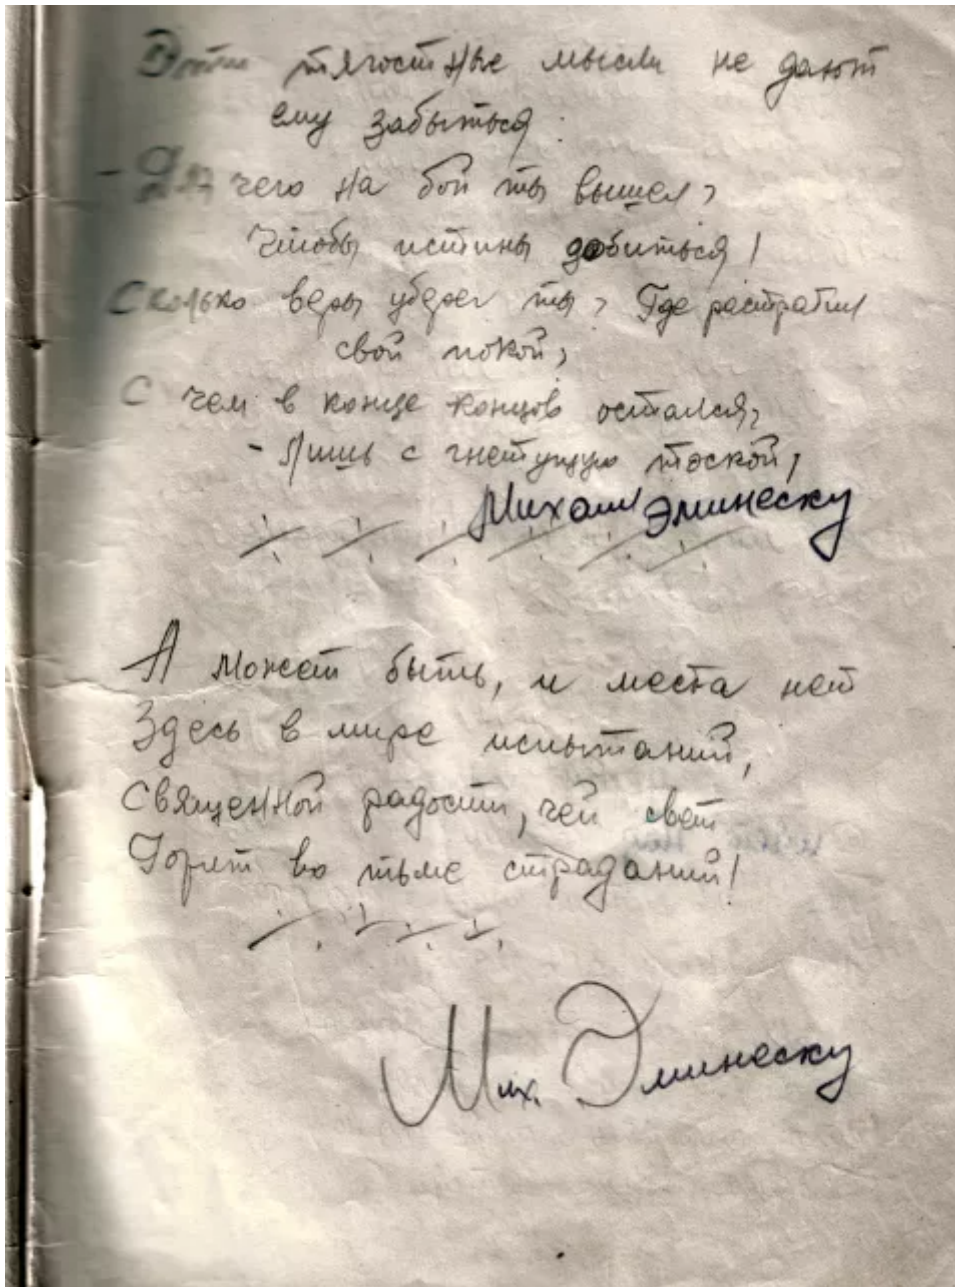 Эти тягостные мысли не дают
ему забыться:
- Для чего на бой ты вышел?
Чтобы истины добиться!
Сколько веры уберег ты? Где растратил
свой покой,
С чем в конце концов остался?
- Лишь с гнетущую тоской,
Михаил Эминеску
А может быть, и места нет
Здесь в мире испытаний,
Священной радости, чей свет
Горит во тьме страданий!
Мих. Эминеску